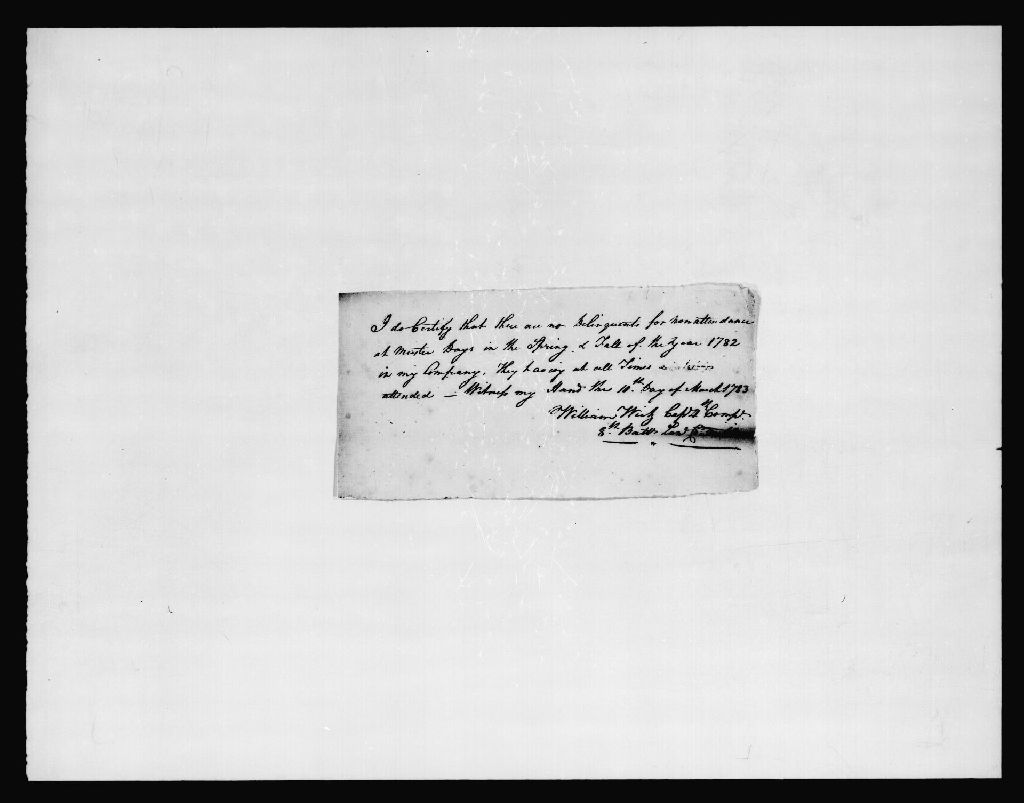 I do Certify that there are no Delinquents for nonattendance
at Muster Days in the Spring & Fall of the Year 1782
in my Company. They having at all Times
attended — Witness my Hand the 10th Day of March 1783
William Wirtz Capt. 2th Comp.
8th Batt.